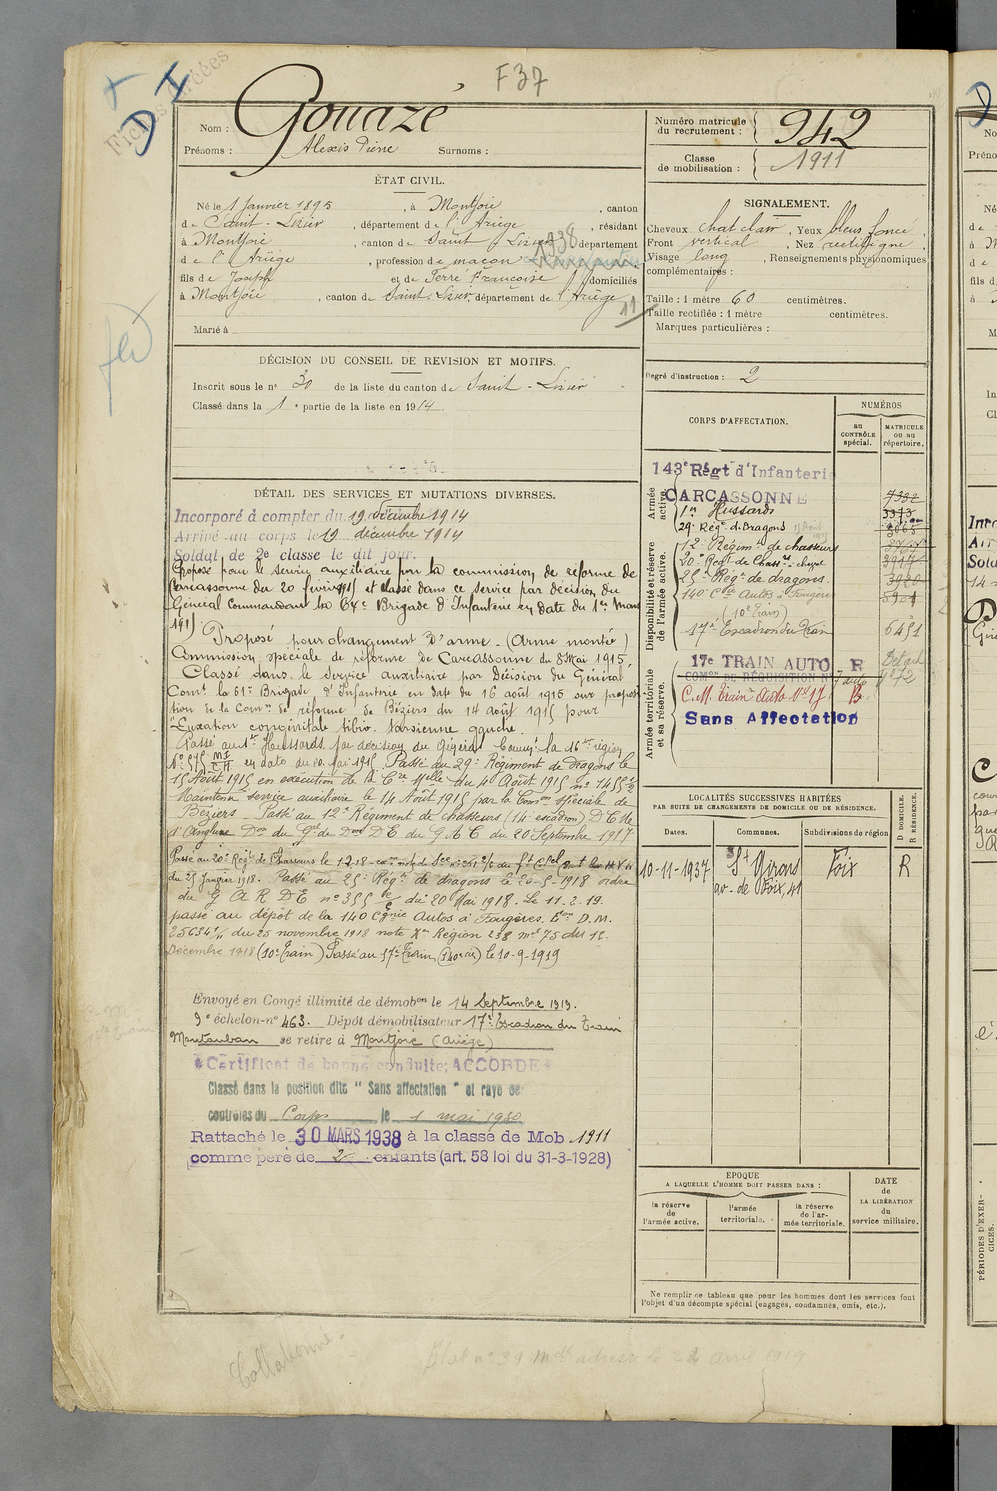 F 37
D I
Nom : Gouazé
Prénoms : Alexis Pierre Surnoms :
Numéro matricule du recrutement : 942
Classe de mobilisation : 1911
ÉTAT CIVIL.
Né le 1 Janvier 1895, à Montjoie, canton
de Saint-Lizier, département de l'Ariège, résidant
à Montjoie, canton de Saint Lizier département
1938
de l'Ariège, profession de maçon
fils de Joseph et de Terré Françoise domiciliés
à Montjoie, canton de Saint-Lizier, département de l'Ariège
11
Marié à
SIGNALEMENT.
Cheveux chat clair, Yeux bleus foncé,
Front vertical, Nez rectiligne
Visage long, Renseignements physionomiques
complémentaires :
Taille : 1 mètre 60 centimètres.
Taille rectifiée : 1 mètre centimètres.
Marques particulières :
Degré d'instruction : 2
DÉCISION DU CONSEIL DE REVISION ET MOTIFS.
Inscrit sous le nº 30 de la liste du canton de Saint-Lizier
Classé dans la 1e partie de la liste en 1914.
DÉTAIL DES SERVICES ET MUTATIONS DIVERSES.
Incorporé à compter du 19 décembre 1914
Arrivé au corps le 19 décembre 1914
Soldat de 2e classe le dit jour.
Proposé pour le service auxiliaire par la commission de réforme de
Carcassonne du 20 février 1915 et classé dans ce service par décision du
Général commandant la 64e Brigade d'Infanterie en date du 1er Mars
1915
Proposé pour changement d'arme (Arme montée)
Commission spéciale de réforme de Carcassonne du 8 Mai 1915.
Classé dans le service auxiliaire par Décision du Général
Comt la 61e Brigade d'Infanterie en date du 16 août 1915 sur proposi
tion de la Comon de réforme de Béziers du 14 août 1915 pour
"Luxation congénitale tibio tarsienne gauche.
Passé au 1er Hussards par décision du Général Commt la 16e région
Nº 575 en date du 20 Mai 1915. Passé au 29e Régiment de dragons le
15 Août 1915 en exécution de la Cre Melle du 4 Août 1915 nº
Maintenu service auxiliaire le 14 Août 1915 par la Comon spéciale de
Béziers. Passé au 12e Régiment de chasseurs (14e escadron)
du 20 Septembre 1917
Passé au 20e Régt de Chasseurs le 1-2-18
du 25 Janvier 1918. Passé au 25e Régt de dragons le 20-5-1918 ordre
du G A R D E nº 355 du 20 Mai 1918. Le 11-2-19
passé au dépôt de la 140 Cgnie Autos à Fougères. D. M.
25634 du 25 novembre 1918 note Xe Région 238 75 du 1e
Décembre 1918 (10e Train) Passé au 17e Train le 10-9-1919
Envoyé en Congé illimité de démobon le 14 Septembre 1919.
9e échelon-nº 463. Dépôt démobilisateur 17e Escadron du Train
Montauban se retire à Montjoie (Ariège)
Certificat de bonne conduite; ACCORDÉ
Classé dans la position dite "Sans affectation" et rayé des
contrôles du Corps le 1 mai 1930
Rattaché le 30 MARS 1938 à la classe de Mob 1911
comme père de 2 enfants (art. 58 loi du 31-3-1928)
CORPS D'AFFECTATION.
NUMÉROS
au CONTRÔLE spécial.
MATRICULE ou au répertoire.
Armée active.
143e Régt d'Infanterie
CARCASSONNE 7332
1er Hussards 3373
29e Régt de Dragons
Disponibilité et réserve de l'armée active.
12e Régimt de chasseurs
20e Regt de Chassrs à cheval
25e Régt de dragons.
140e Cie Autos à Fougères
(10e Train)
17e Escadron du Train 6451
Armée territoriale et sa réserve.
17e TRAIN AUTO R
COMon DE RÉQUISITION
C. M. Train Auto Nº 17 B
Sans Affectation
LOCALITÉS SUCCESSIVES HABITÉES
PAR SUITE DE CHANGEMENTS DE DOMICILE OU DE RÉSIDENCE.
Dates. Communes. Subdivisions de région
D DOMICILE. R RÉSIDENCE.
10-11-1937 St Girons Foix R
av. de Foix, 41
EPOQUE
A LAQUELLE L'HOMME DOIT PASSER DANS :
la réserve de l'armée active.
l'armée territoriale.
la réserve de l'armée territoriale.
DATE de LA LIBÉRATION du service militaire.
Ne remplir ce tableau que pour les hommes dont les services font
l'objet d'un décompte spécial (engagés, condamnés, omis, etc.).
Collationné.
PÉRIODES D'EXERCICES.